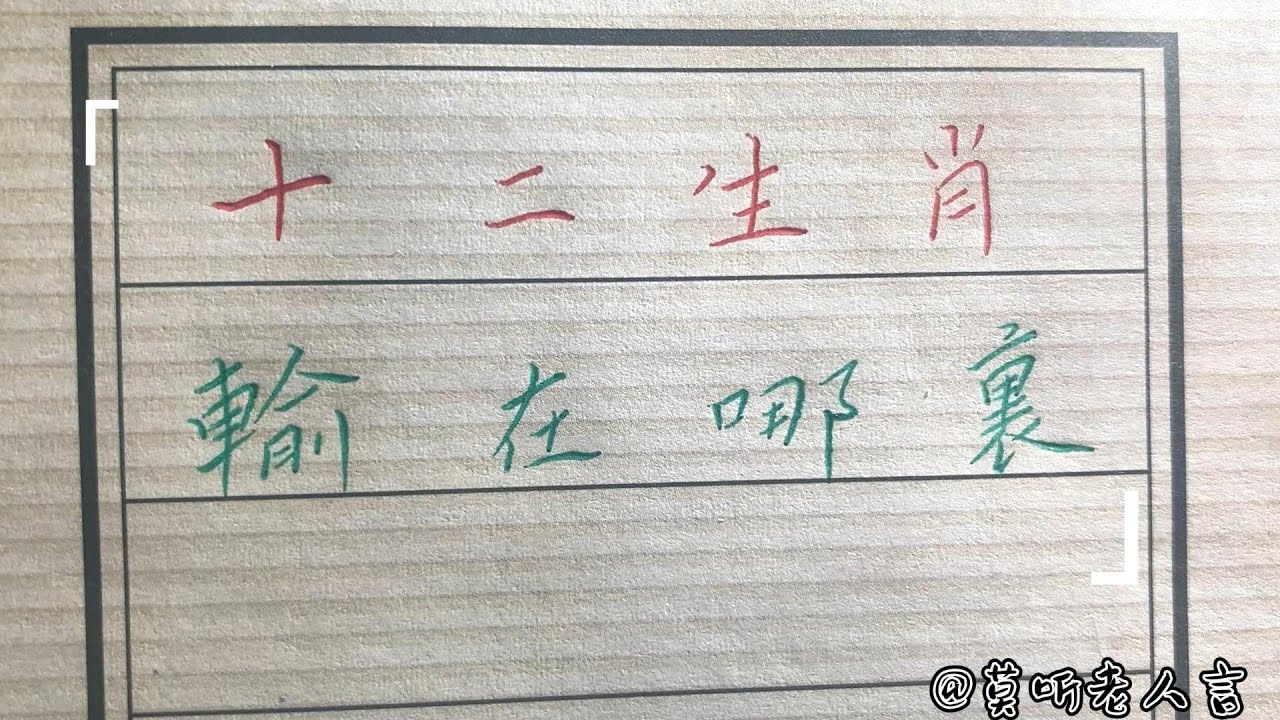 十二生肖
輸在哪裏
@莫听老人言